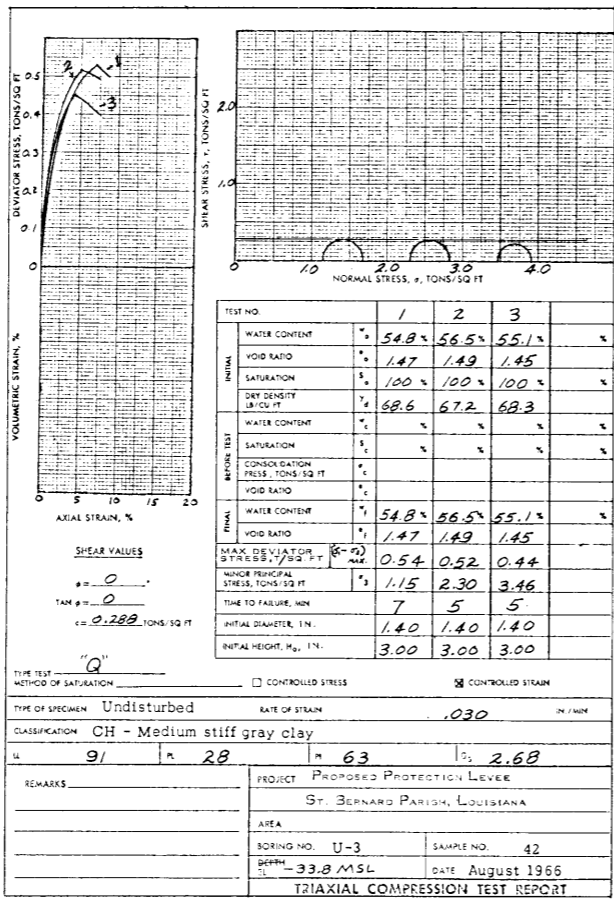 DEVIATOR STRESS, TONS/SQ FT
0.5
0.4
0.3
0.2
0.1
0
2
1
3
VOLUMETRIC STRAIN, %
0 5 10 15 20
AXIAL STRAIN, %
SHEAR STRESS, τ, TONS/SQ FT
2.0
1.0
0 1.0 2.0 3.0 4.0
NORMAL STRESS, σ, TONS/SQ FT
SHEAR VALUES
φ = 0 °
TAN φ = 0
c = 0.288 TONS/SQ FT
TEST NO. 1 2 3
INITIAL
WATER CONTENT w₀ 54.8 % 56.5 % 55.1 % %
VOID RATIO e₀ 1.47 1.49 1.45
SATURATION S₀ 100 % 100 % 100 % %
DRY DENSITY LB/CU FT γd 68.6 67.2 68.3
BEFORE TEST
WATER CONTENT wc % % % %
SATURATION Sc % % % %
CONSOLIDATION PRESS., TONS/SQ FT σc
VOID RATIO ec
FINAL
WATER CONTENT wf 54.8 % 56.5 % 55.1 % %
VOID RATIO ef 1.47 1.49 1.45
MAX DEVIATOR STRESS, T/SQ. FT (σ₁-σ₃) MAX. 0.54 0.52 0.44
MINOR PRINCIPAL STRESS, TONS/SQ FT σ₃ 1.15 2.30 3.46
TIME TO FAILURE, MIN 7 5 5
INITIAL DIAMETER, IN. 1.40 1.40 1.40
INITIAL HEIGHT, H₀, IN. 3.00 3.00 3.00
TYPE TEST "Q"
METHOD OF SATURATION
☐ CONTROLLED STRESS ☒ CONTROLLED STRAIN
TYPE OF SPECIMEN Undisturbed RATE OF STRAIN .030 IN./MIN
CLASSIFICATION CH - Medium stiff gray clay
LL 91 PL 28 PI 63 Gs 2.68
REMARKS
PROJECT PROPOSED PROTECTION LEVEE
ST. BERNARD PARISH, LOUISIANA
AREA
BORING NO. U-3 SAMPLE NO. 42
DEPTH
EL -33.8 MSL DATE August 1966
TRIAXIAL COMPRESSION TEST REPORT